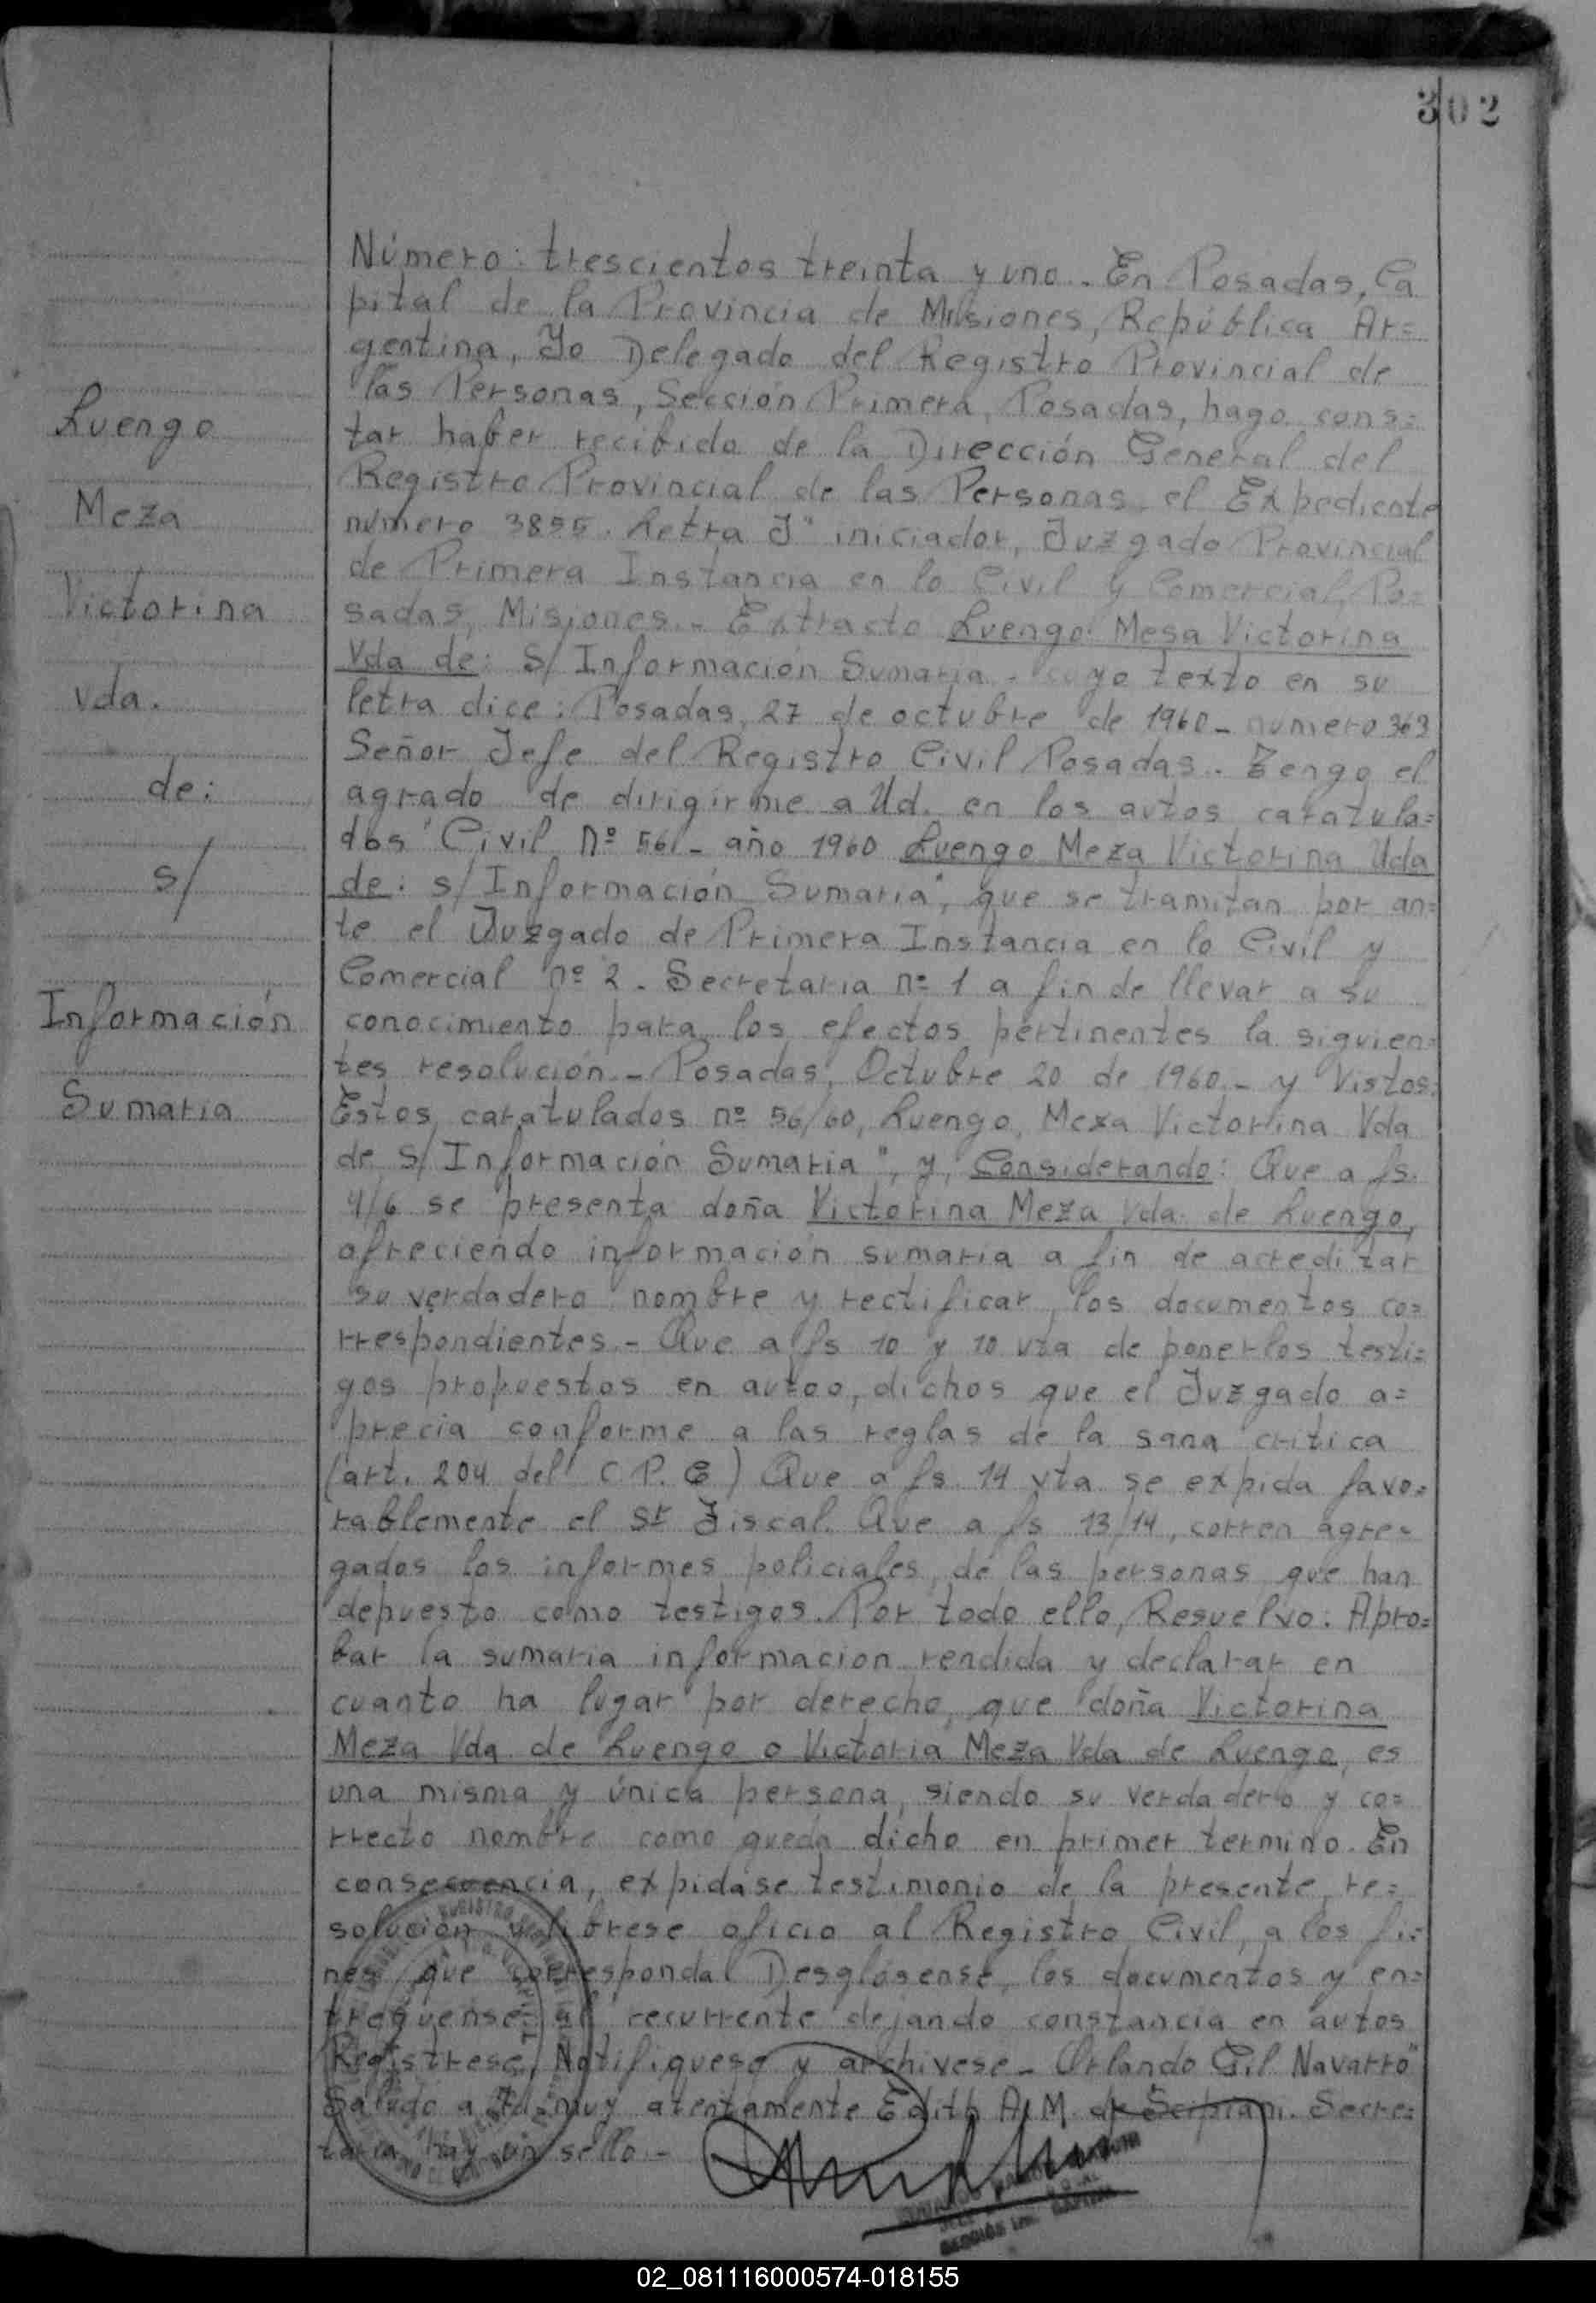 302
Luengo
Meza
Victorina
vda.
de:
s/
Información
Sumaria
Número: trescientos treinta y uno. En Posadas, Ca
pital de la Provincia de Misiones, República Ar=
gentina, Yo Delegado del Registro Provincial de
las Personas, Sección Primera, Posadas, hago cons=
tar haber recibido de la Dirección General del
Registro Provincial de las Personas, el Expediente
número 3855. Letra J" iniciador, Juzgado Provincial
de Primera Instancia en lo Civil y Comercial, Po=
sadas, Misiones.- Extracto Luengo Mesa Victorina
Vda de: S/ Información Sumaria - cuyo texto en su
letra dice: Posadas, 27 de octubre de 1960- numero 363
Señor Jefe del Registro Civil Posadas. Tengo el
agrado de dirigirme a Ud. en los autos caratula=
dos "Civil Nº 56- año 1960 Luengo Meza Victorina Vda
de: s/ Información Sumaria", que se tramitan por an=
te el Juzgado de Primera Instancia en lo Civil y
Comercial nº 2. Secretaria nº 1 a fin de llevar a su
conocimiento para los efectos pertinentes la siguien=
tes resolución.- Posadas, Octubre 20 de 1960.- y Vistos:
Estos caratulados nº 56/60, Luengo, Meza Victorina Vda
de s/ Información Sumaria", y, Considerando: Que a fs.
4/6 se presenta doña Victorina Meza Vda. de Luengo,
ofreciendo información sumaria a fin de acreditar
su verdadero nombre y rectificar los documentos co=
rrespondientes.- Que a fs 10 y 10 vta de ponerlos testi=
gos propuestos en autoo, dichos que el Juzgado a=
precia conforme a las reglas de la sana critica
(art. 204 del C P. C) Que a fs. 14 vta. se expida favo=
rablemente el Sr Fiscal. Que a fs 13/14, corren agre=
gados los informes policiales, de las personas que han
depuesto como testigos. Por todo ello, Resuelvo: Apro=
bar la sumaria informacion rendida y declarar en
cuanto ha lugar por derecho, que doña Victorina
Meza Vda. de Luengo o Victoria Meza Vda de Luengo, es
una misma y única persona, siendo su verdadero y co=
rrecto nombre como queda dicho en primer termino. En
consecuencia, expidáse testimonio de la presente re=
solución y librese oficio al Registro Civil, a los fi=
nes que corresponda. Desglósense, los documentos y en=
treguense al recurrente dejando constancia en autos
Registrese, Notifiquese y archivese- Orlando Gil Navarro"
Saludo a Ud muy atentamente Edith A. M. de Scipiani. Secre=
taria hay un sello.-
SECCIÓN 1ra. CAPITAL
02_081116000574-018155